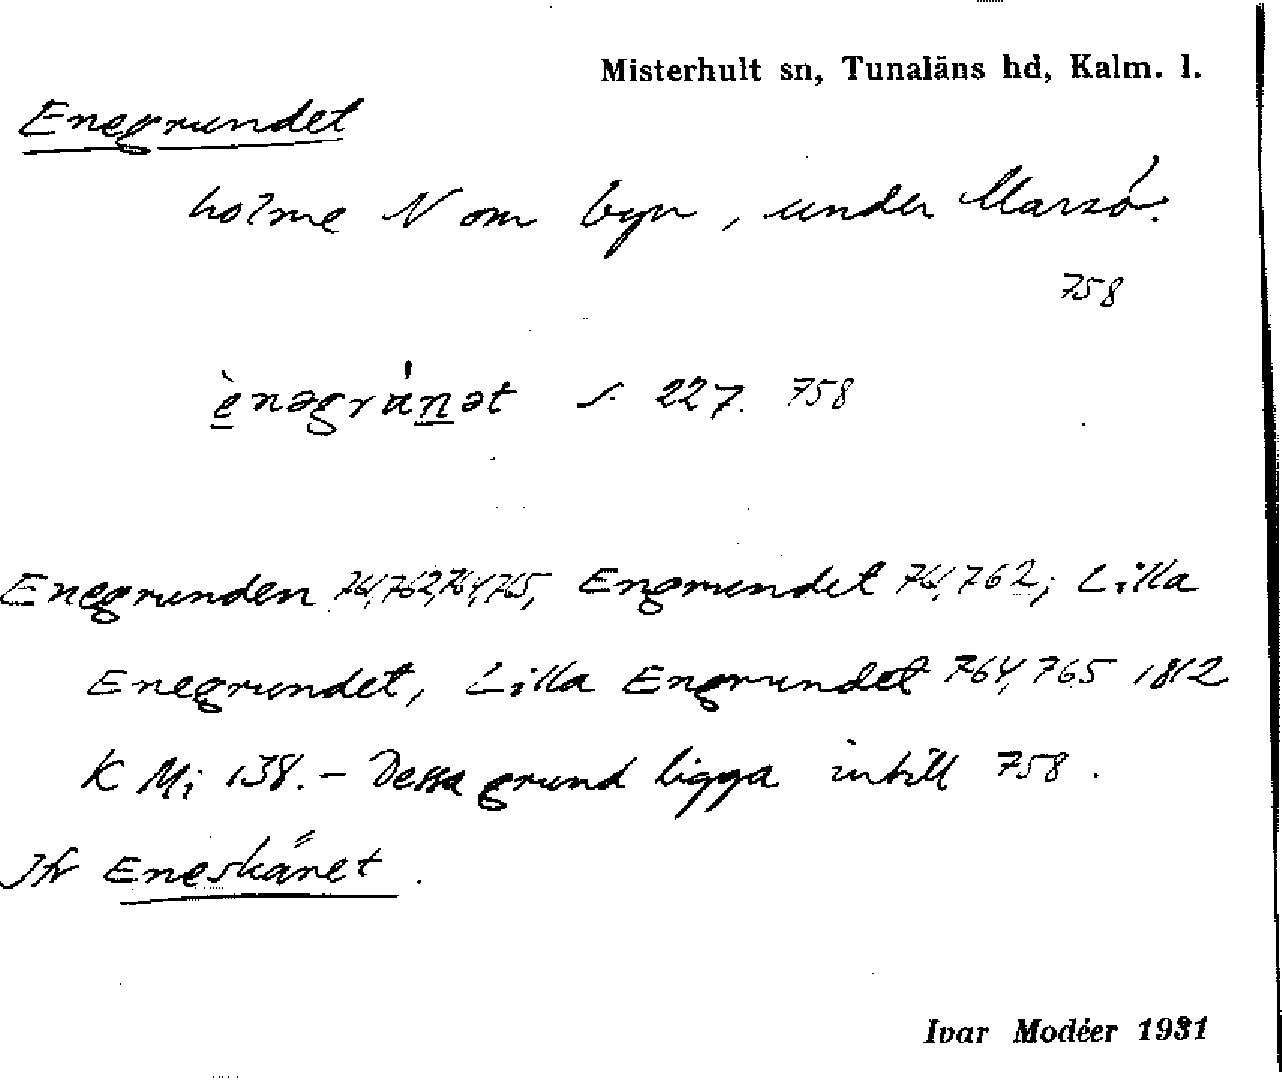 Misterhult sn, Tunaläns hd, Kalm. l.
Enegrundet
holme N om byn, under Marsö.
758
ènəgrúnət s. 227. 758
Enegrunden 761,762,764,765, Engrundet 761,762; Lilla
Enegrundet, Lilla Engrundet 764,765 1812
K Mi 138. – Dessa grund ligga intill 758.
Jfr Eneskäret.
Ivar Modéer 1931